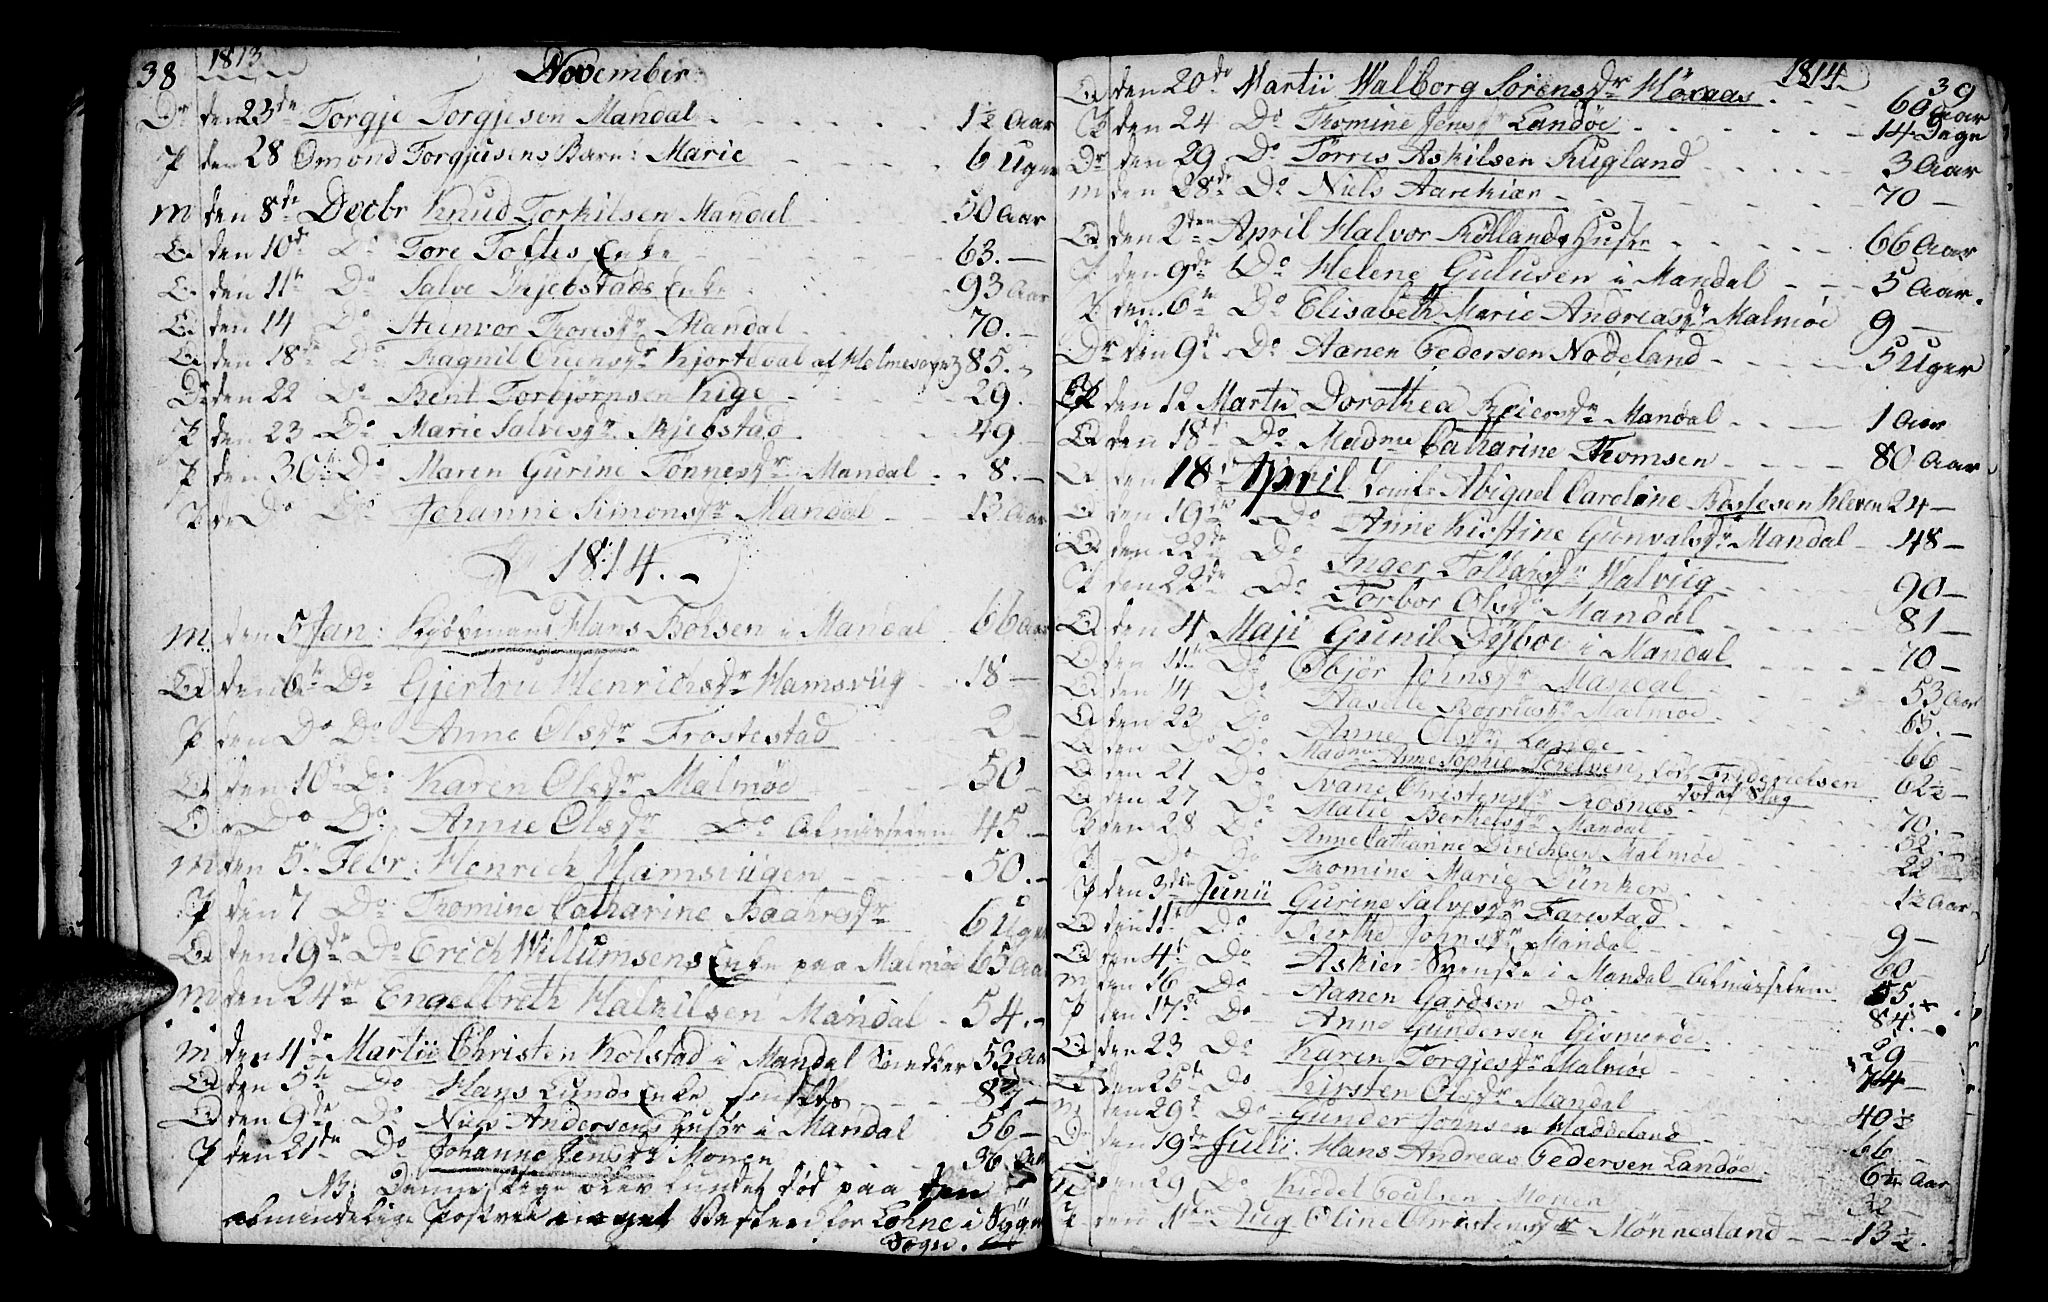 38 1813 November
Dr den 23de Torgje Torgjesen Mandal 1½ Aar
P den 28 Omond Torgjusens Barn: Marie 6 Uger
M den 8de Decbr Knud Torkilsen Mandal 50 Aar
Q den 10de Do Tore Toftes Enke 63.
Q den 11te Do Salve Skjebstads Enke 93 Aar
Q den 14 Do Steinvor Toresdr Mandal 70.
Q den 18de Do Ragnil Evensdr Kjortedal af Holmesogn 85.
Dr den 22 Do Bent Torbjørnsen Kige 29.
P den 23 Do Marie Salvesdr Skjebstad 49
P den 30te Do Maren Gurine Tønnesdr Mandal 8.
P den Do Do Johanne Simonsdr Mandal 13 Aar
1814.
M. den 5 Jan: Kjøbmand Hans Bohsen i Mandal 66 Aar
Q den 6te Do Gjertru Henrichsdr Hamsviig 18
P den Do Do Anne Olsdr Frostestad 2
Q den 10de Do Karen Olsdr Malmøe 50
Q Do Do Anne Olsdr Do Almisselem 45.
M den 5te Febr: Henrich Hamsviigen 50.
P den 7 Do Tomine Catharine Baahresdr 6 Uger
Q den 19de Do Erich Willumsens Enke paa Malmøe 65 Aar
M den 24de Engelbreth Halkilsen Mandal 54.
M den 4de Martii Christen Kolstad i Mandal Snedker 53 Aar
Q den 5te Do Hans Lunds Enke 87
Q den 9de Do Niels Andersens Hustr i Mandal 56
P den 21de Do Johanne Jensdr Monen 36 Aar
NB: Denne Pige blev fundet død paa den
almindelige Postvei Vesten for Lohne i Søgne
Sogn.
1814. 39
Q den 20de Martii Walborg Sørensdr Hønaas 60 Aar
P den 24 Do Tomine Jensdr Landøe 14 Dage
Dr den 29 Do Tørres Askilsen Kugland 3 Aar
M den 28de Do Niels Aarekiær 70
Q den 2den April Halvor Røllands Hustr 66 Aar
P den 9de Do Helene Gulusen i Mandal 5 Aar.
P den 6te Do Elisabeth Marie Andreasdr Malmøe 9
Dr den 9de Do Aanen Pedersen Nodeland 5 Uger
P den 12 Martii Dorothea Reiersdr Mandal 1 Aar
Q den 18de Do Madme Catharine Thomsen 80 Aar
Q den 18de April Jomfr Abigael Caroline Kleven 24
Q den 19de Do Anne Kistine Gunvalsdr Mandal 48
Q den 22de Do Inger Tollaksdr Walviig 90
Q den 22de Do Torbor Olsdr Mandal 81
Q den 4 Maji Gunil Dysboe i Mandal 70
Q den 11te Do Osbjør Johnsdr Mandal 53 Aar
Q den 14 Do Aaselle Borriesdr Malmøe 65.
Q den 23 Do Anne Olsdr Lande 66
Q den Do Do Madme Anne Sophie Schelven, fød Friderichsen 62½
Q den 21 Do Svane Christensdr Rosnæs død af Slag 70.
Q den 27 Do Malie Berthelsdr Mandal 52.
P den 28 Do Anne Cathrine Dirichsen Malmøe 22
P Do Do Tomine Marie Dünker 1½ Aar
P den 3die Junii Gurine Salvesdr Farestad 9
Q den 11te Do Berthe Johnsdr Mandal 60
Q den 4de Do Askier Svenske i Mandal Almisselem 55.
M den 16 Do Aanen Gardsen Do 84.
P den 17de Do Anne Gundersen Gismerøe 29
Q den 23 Do Karen Torgjesdr Malmøe 74
Q den 25de Do Kirsten Olsdr Mandal 40½
M den 29de Do Gunder Johnsen Haddeland 66
D den 19de Julii Hans Andreas Pedersen Landøe 6¼ Aar
den 29 Do Kiddel Poulsen Monen 32
P den 1ste Aug Oline Christensdr Mønnesland 13½